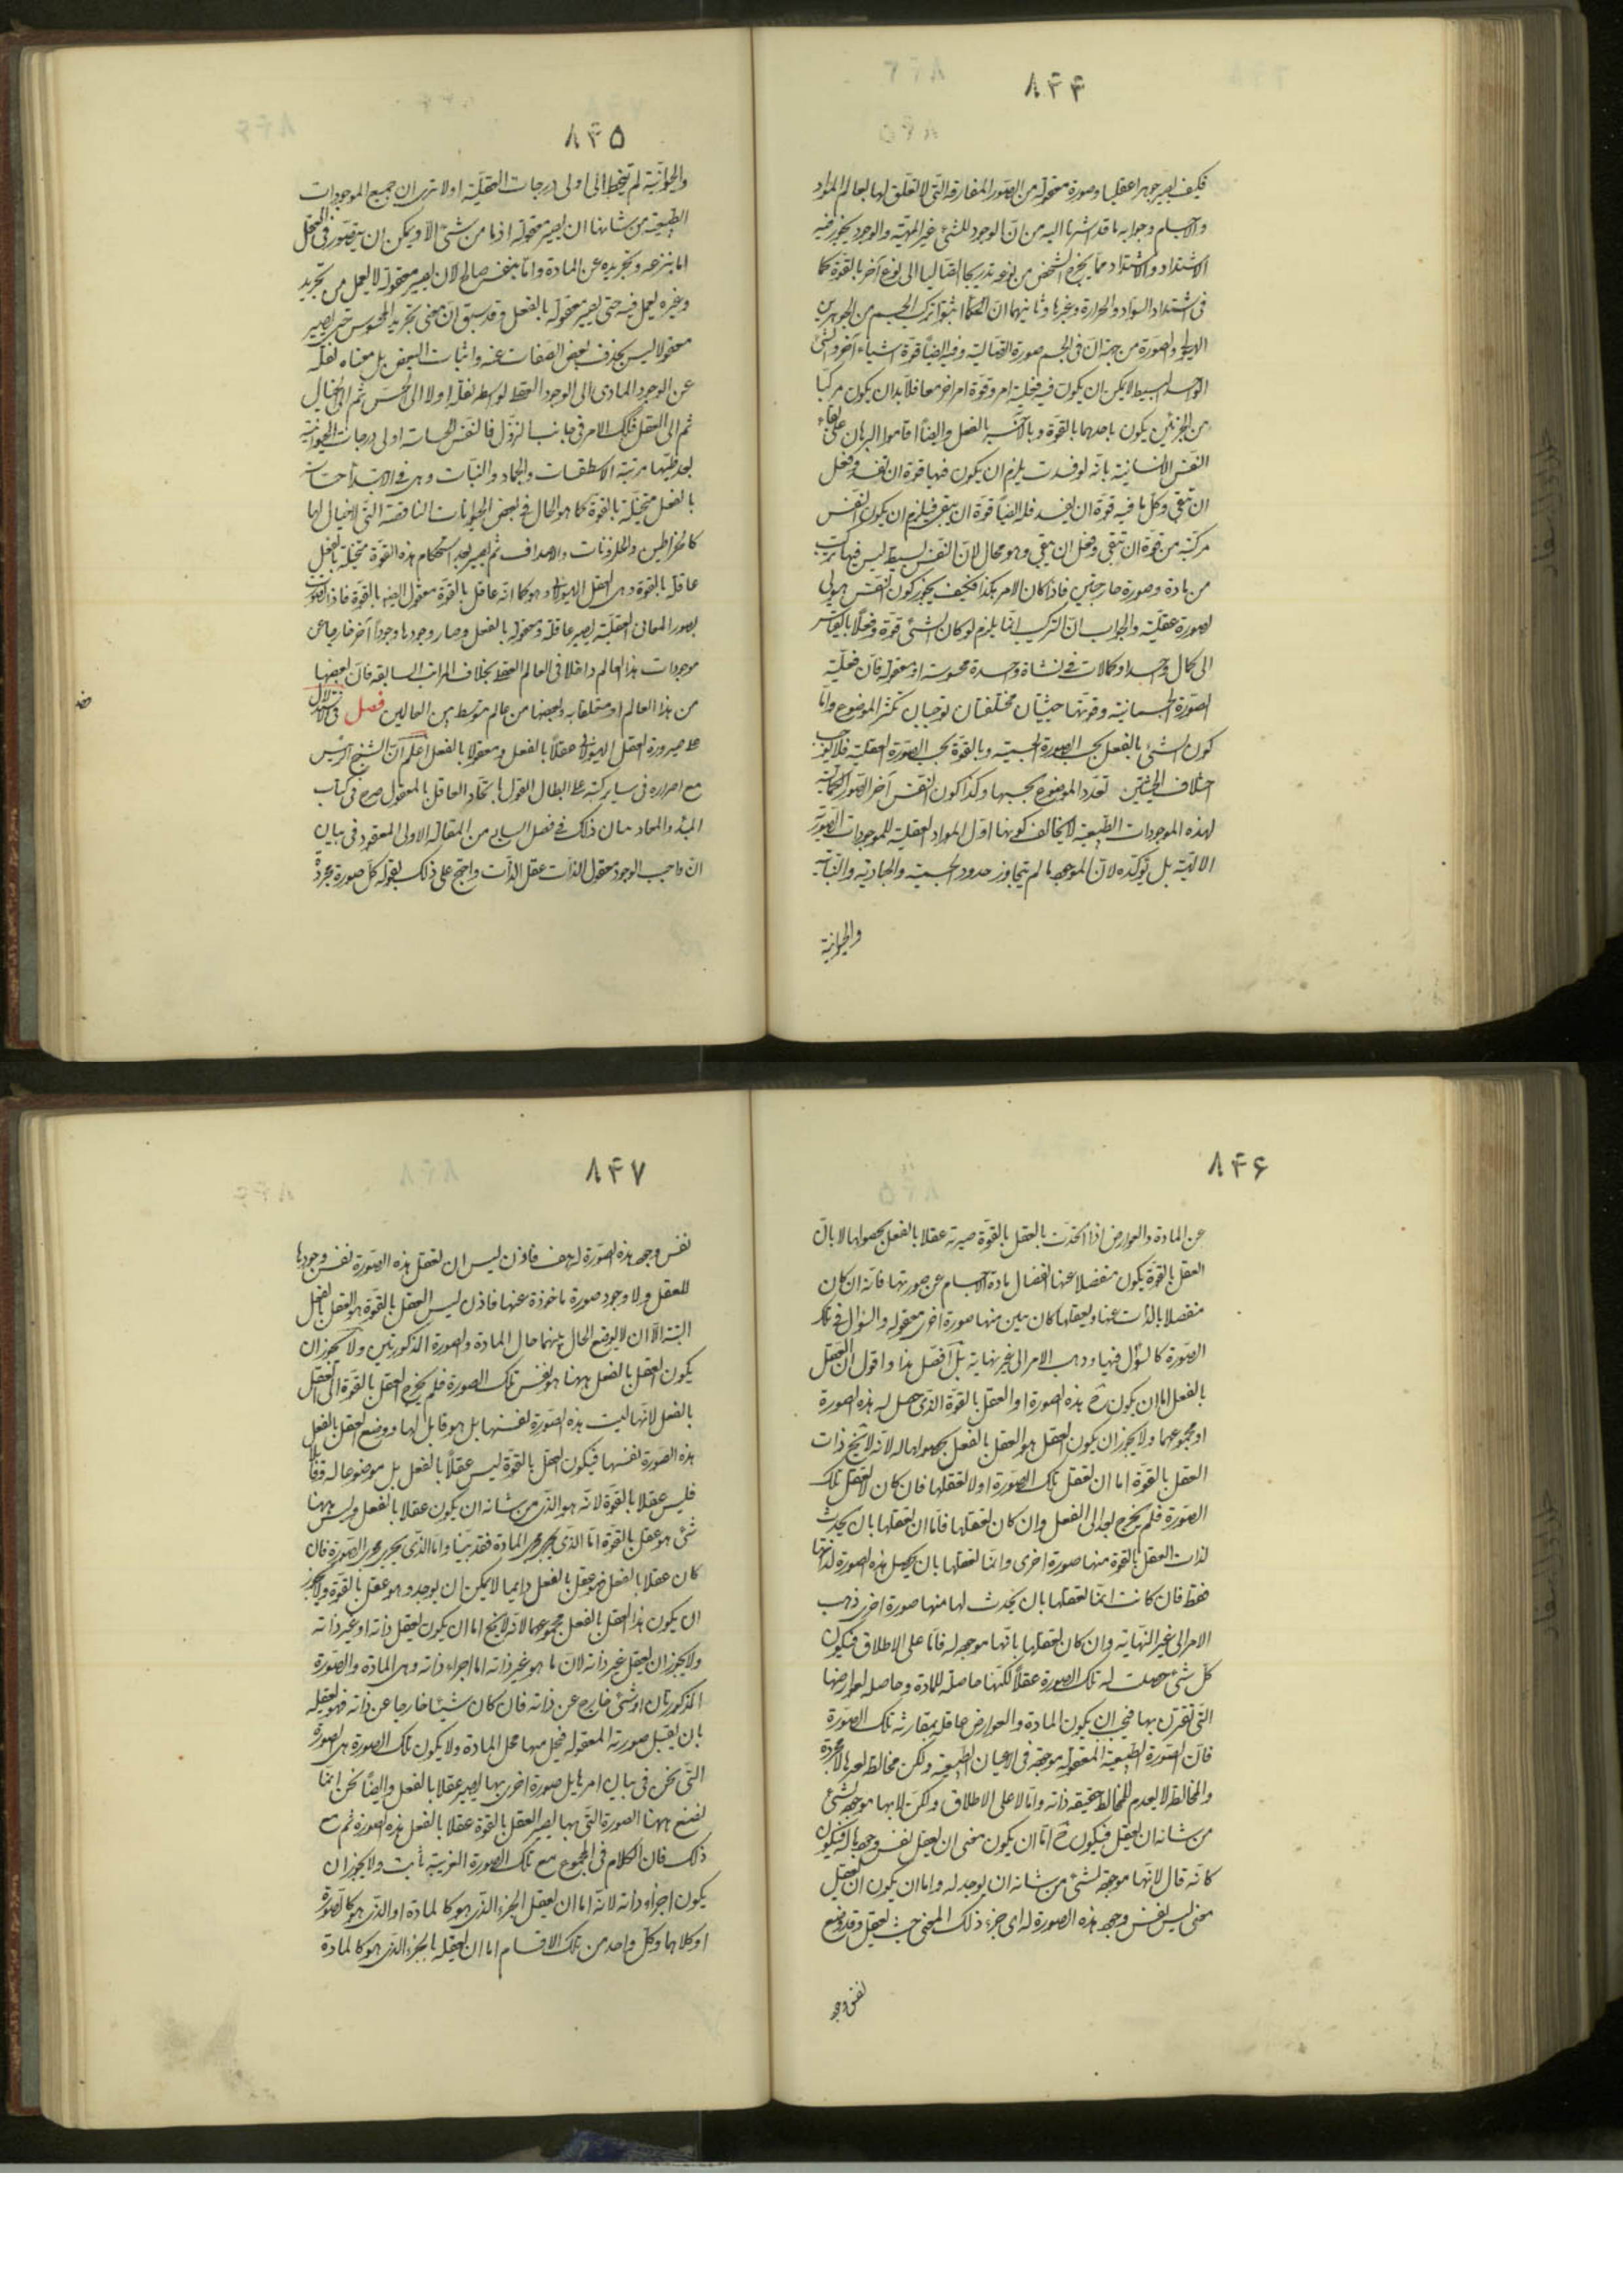 ٨٤٤
فكيف يصير جوهرا عقليا وصورة معقولة من الصور المفارقة التى لا تعلق لها بعالم المواد
والاجسام وجوابه ما قد اشرنا اليه من ان الوجود للشئ غير المهية والوجود يجوز فيه
الاشتداد والاشتداد مما يخرج الشخص من نوعه تدريجا اتصاليا الى نوع آخر بالقوة كما
فى اشتداد السواد والحرارة وغيرها وثانيهما ان الحكما اثبتوا تركب الجسم من الجوهرين
الهيولى والصورة من جهة ان فى الجسم صورة اتصالية وفيه ايضا قوة اشياء آخر والشئ
الواحد البسيط لا يمكن ان يكون فيه فعلية امر وقوة امر آخر معا فلا بد ان يكون مركبا
من الجزئين يكون باحدهما بالقوة وبالآخر بالفعل وايضا اقاموا البرهان على بقاء
النفس الانسانية بانه لو فسدت يلزم ان يكون فيها قوة ان تفسد وفعل
ان تبقى وكل ما فيه قوة ان يفسد فله ايضا قوة ان يبقى فيلزم ان يكون النفس
مركبة من قوة ان تبقى وفعل ان تبقى وهو محال لان النفس بسيط ليس فيها تركيب
من مادة وصورة خارجتين فاذا كان الامر هكذا فكيف يجوز كون النفس هيولى
لصورة عقلية والجواب ان التركيب انما يلزم لو كان الشئ قوة وفعلا بالقياس
الى كمال واحد او كمالات فى نشاة واحدة محسوسة او معقولة فان فعلية
الصورة الجسمانية وقوتها حيثيتان مختلفتان توجبان تكثر الموضوع واما
كون الشئ بالفعل بحسب الصورة الحسية وبالقوة بحسب الصورة العقلية فلا يوجب
اختلاف الحيثيتين تعدد الموضوع بحسبها وكذا كون النفس آخر الصور الكمالية
لهذه الموجودات الطبيعية لا يخالف كونها اول المواد العقلية للموجودات الصورية
الالهية بل يؤكده لان الموجود ما لم يتجاوز حدود الجسمية والجمادية والنباتية
والحيوانية
٨٤٥
والحيوانية لم يتخط الى اولى درجات العقلية اولا ترى ان جميع الموجودات
الطبيعية من شانها ان يصير معقولة اذ ما من شئ الا ويمكن ان يتصور فى العقل
اما بنزعه وتجريده عن المادة واما بنفس صالح لان يصير معقولة لا بعمل من تجريد
وغيره يعمل فيه حتى يصير معقولة بالفعل وقد سبق ان معنى تجريد المحسوس حتى يصير
معقولا ليس بحذف بعض الصفات عنه واثبات البعض بل معناه نقله
عن الوجود المادى الى الوجود العقلى بواسطة نقله اولا الى الحس ثم الى الخيال
ثم الى العقل فكك الامر فى جانب النزول فالنفس الحساسة اولى درجات الحيوانية
بعد طيها مرتبة الاسطقسات والجماد والنبات وهى فى الابتداء حساسة
بالفعل متخيلة بالقوة كما هو الحال فى بعض الحيوانات الناقصة التى لا خيال لها
كالخراطين والحلزونات والاصداف ثم يصير بعد استحكام هذه القوة متخيلة بالفعل
عاقلة بالقوة وهى العقل الهيولانى وهو كما انه عاقل بالقوة معقول ايضا بالقوة فاذا تصورت
بصور المعانى العقلية يصير عاقلة ومعقولة بالفعل وصار وجودها وجودا آخر خارجا عن
موجودات هذا العالم داخلا فى العالم العقلى بخلاف المراتب السابقة فان بعضها
من هذا العالم او متعلقا به وبعضها من عالم متوسط بين العالمين فصل فى الاستدلال
على صيرورة العقل الهيولانى عقلا بالفعل ومعقولا بالفعل اعلم ان الشيخ الرئيس
مع اصراره فى ساير كتبه على ابطال القول باتحاد العاقل بالمعقول صرح فى كتاب
المبدء والمعاد ببيان ذلك فى فصل السابع من المقالة الاولى المعقود فى بيان
ان واجب الوجود معقول الذات عقل الذات واحتج على ذلك بقوله كل صورة مجردة
٨٤٦
عن المادة والعوارض اذا اتحدت بالعقل بالقوة صيرته عقلا بالفعل بحصولها لا بان
العقل بالقوة يكون منفصلا عنها انفصال مادة الاجسام عن صورتها فانه ان كان
منفصلا بالذات عنها ويعقلها كان يبين منها صورة اخرى معقولة والسؤال فى تلك
الصورة كالسؤال فيها وذهب الامر الى غير نهاية بل افصل هذا واقول ان العقل
بالفعل اما ان يكون ح هذه الصورة او العقل بالقوة الذى حصل له هذه الصورة
او مجموعهما ولا يجوز ان يكون العقل هو العقل بالفعل بحصولها له لانه لا يخ ذات
العقل بالقوة اما ان تعقل تلك الصورة او لا تعقلها فان كان لا تعقل تلك
الصورة فلم يخرج بعد الى الفعل وان كان تعقلها فاما ان تعقلها بان يحدث
لذات العقل بالقوة منها صورة اخرى واما تعقلها بان يحصل هذه الصورة لذاتها
فقط فان كانت انما تعقلها بان يحدث لها منها صورة اخرى ذهب
الامر الى غير النهاية وان كان تعقلها بانها موجودة له فاما على الاطلاق فيكون
كل شئ حصلت له تلك الصورة عقلا لكنها حاصلة للمادة وحاصلة لعوارضها
التى تقترن بها فيجب ان يكون المادة والعوارض عاقلة بمقارنة تلك الصورة
فان الصورة الطبيعية المعقولة موجودة فى الاعيان الطبيعية ولكن مخالطة لغيرها لا مجردة
والمخالط لا يعدم المخالط حقيقة ذاته واما لا على الاطلاق ولكن لانها موجودة لشئ
من شانه ان يعقل فيكون ح اما ان يكون معنى ان يعقل نفس وجودها له فيكون
كانه قال لانها موجودة لشئ من شانه ان يوجد له واما ان يكون ان يعقل
معنى ليس نفس وجود هذه الصورة له اى جزء ذلك المعنى حيث يعقل وقد وضع
نفس وجود
٨٤٧
نفس وجود هذه الصورة له هف فاذن ليس ان تعقل هذه الصورة نفس وجودها
للعقل ولا وجود صورة ماخوذة عنها فاذن ليس العقل بالقوة هو العقل بالفعل
البتة الا ان لا يوضع الحال بينهما حال المادة والصورة المذكورتين ولا يجوز ان
يكون العقل بالفعل ههنا هو نفس تلك الصورة فلم يخرج العقل بالقوة الى العقل
بالفعل لانها ليست هذه الصورة نفسها بل هو قابل لها ووضع العقل بالفعل
هذه الصورة نفسها فيكون العقل بالقوة ليس عقلا بالفعل بل موضوعا له وقابلا
فليس عقلا بالقوة لانه هو الذى من شانه ان يكون عقلا بالفعل وليس ههنا
شئ هو عقل بالقوة اما الذى يجرى مجرى المادة فقد بينا واما الذى يجرى مجرى الصورة فان
كان عقلا بالفعل فهو عقل بالفعل دايما لا يمكن ان يوجد وهو عقل بالقوة ولا يجوز
ان يكون هذا العقل بالفعل مجموعهما لانه لا يخ اما ان يكون يعقل ذاته او غير ذاته
ولا يجوز ان يعقل غير ذاته لان ما هو غير ذاته اما اجزاء ذاته وهى المادة والصورة
المذكورتان او شئ خارج عن ذاته فان كان شيئا خارجا عن ذاته فهو يعقله
بان يقبل صورته المعقولة فيحل منها محل المادة ولا يكون تلك الصورة هى الصورة
التى نحن فى بيان امرها بل صورة اخرى بها يصير عقلا بالفعل وايضا نحن انما
نضع ههنا الصورة التى بها يصير العقل بالقوة عقلا بالفعل هذه الصورة ثم مع
ذلك فان الكلام فى المجموع مع تلك الصورة الغريبة ثابت ولا يجوز ان
يكون اجزاء ذاته لانه اما ان يعقل الجزء الذى هو كالمادة او الذى هو كالصورة
او كلاهما وكل واحد من تلك الاقسام اما ان يعقله بالجزء الذى هو كالمادة